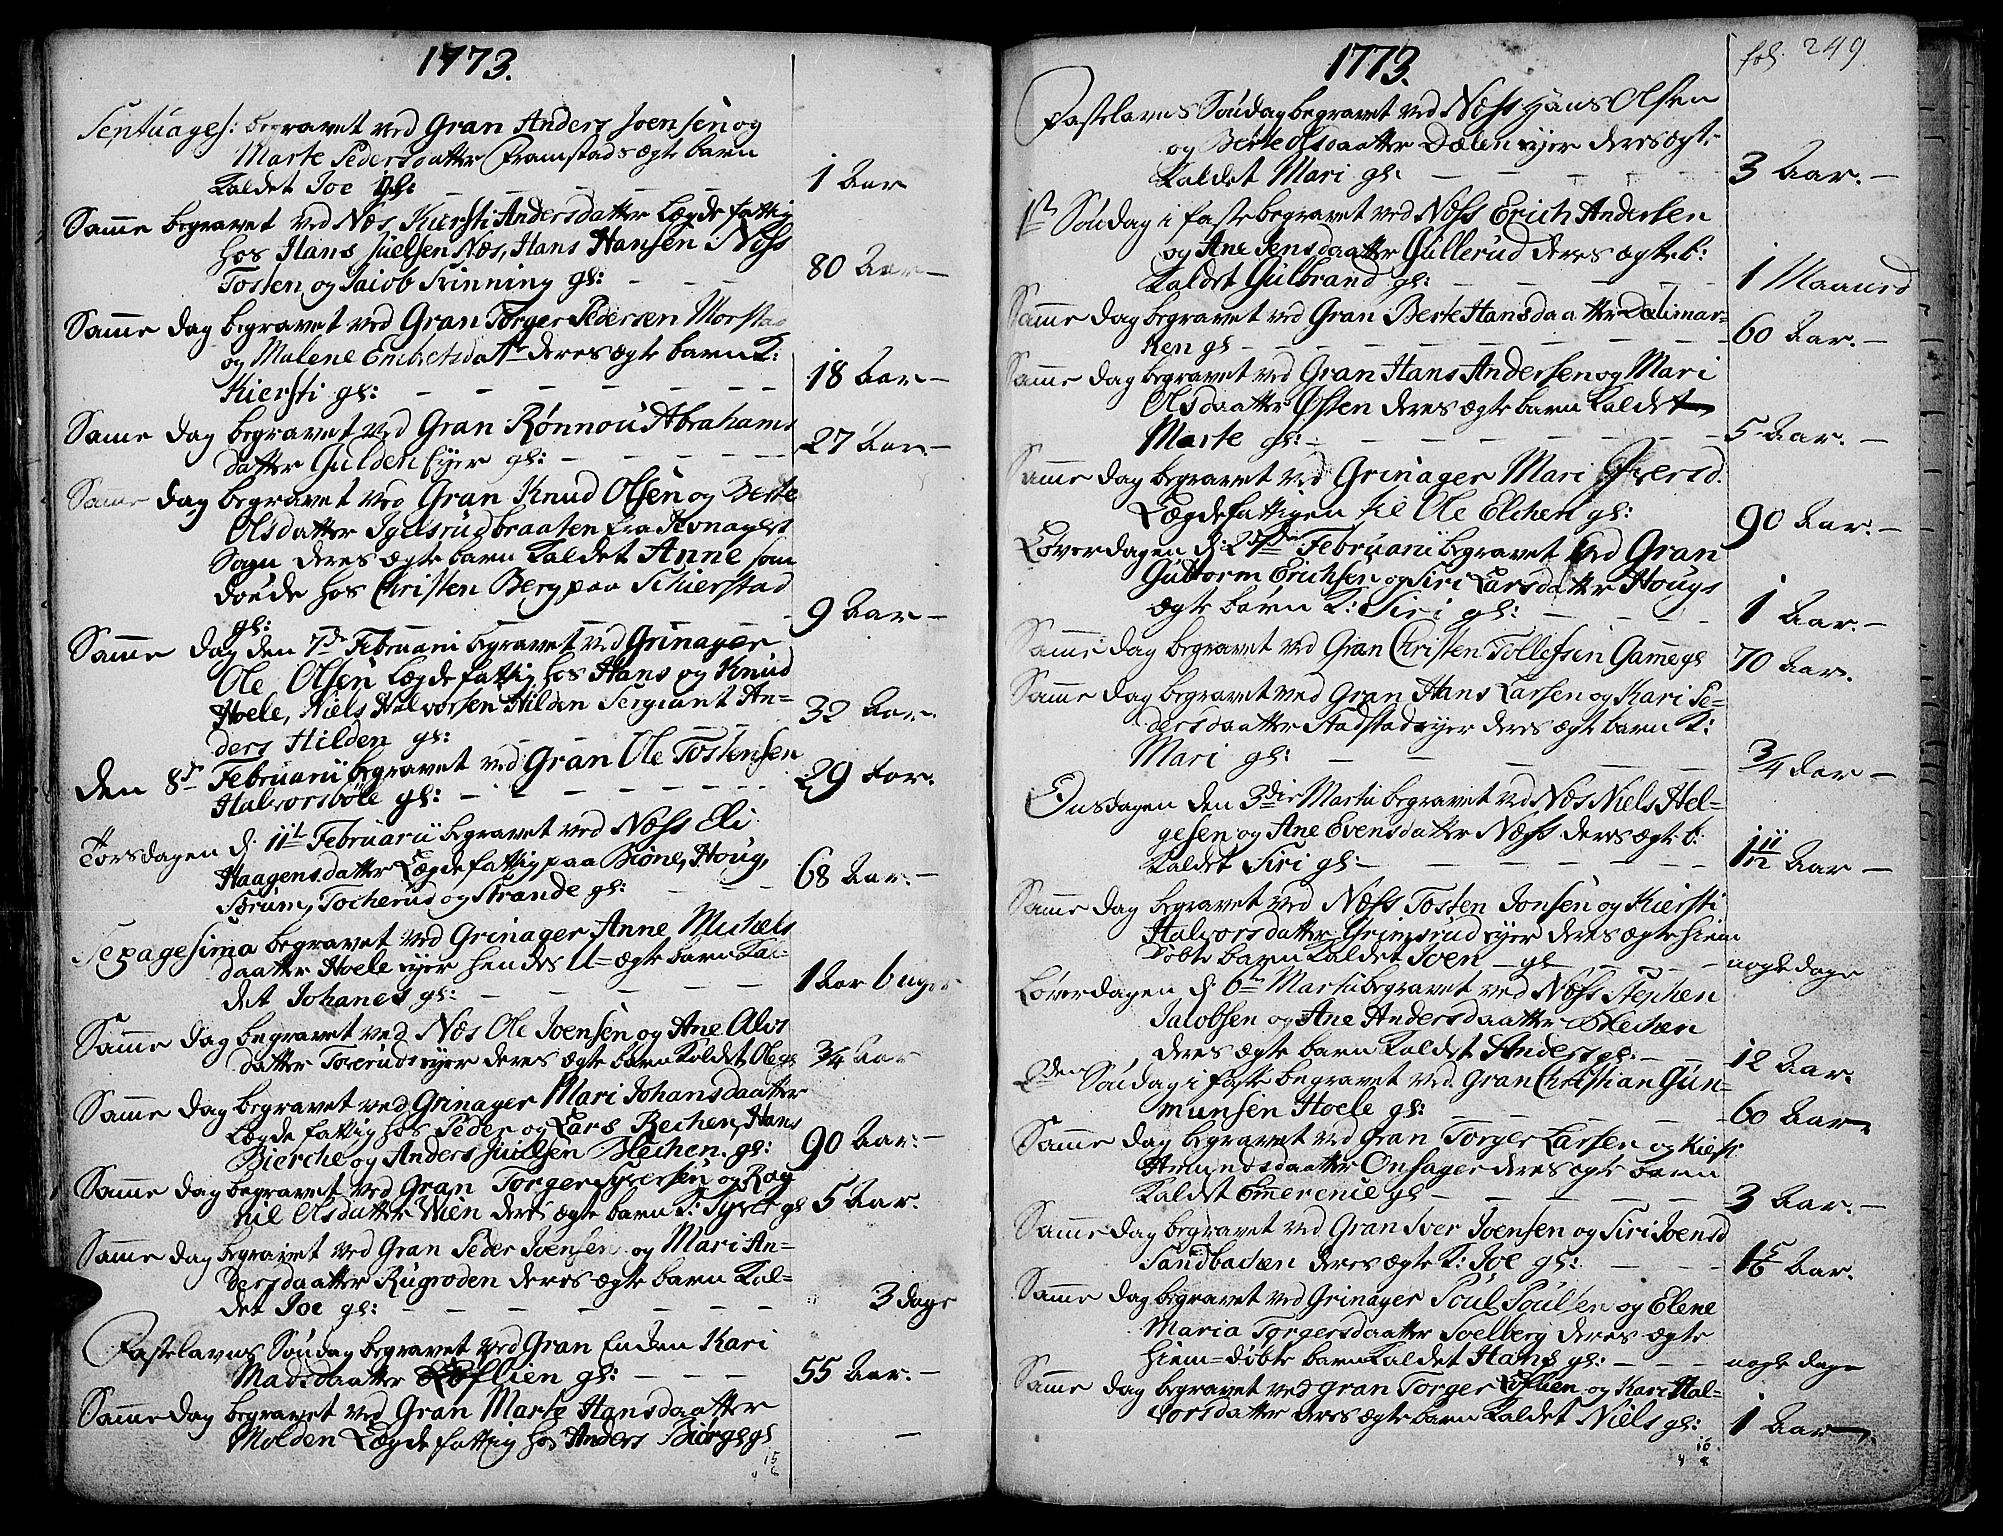 1773.
Septuages: begravet ved Gran Anders Joensen og
Marte Pedersdaatter Framstads ægte barn
kaldet Joe gl: 1 Aar
Samme begravet ved Næs Kiersti Andersdatter Lægdefattig
hos Hans Juelsen Næs, Hans Hansen Næss
Tosten og Jacob Svinning gl: 80 Aar
Samme dag begravet ved Gran Torger Pedersen Morstad
og Malene datr deres ægte barn K:
Kiersti gl: 18 Aar
Same dag begravet ved Gran Rønnou Abrahams
datter Gulden Eyer gl: 27 Aar
Same dag begravet ved Gran Knud Olsen og Berte
Olsdatter Igelsrudbraaten fra Jevnagers
Sogn deres ægte barn kaldet Anne som
døde hos Christen Berg paa Schierstad
gl: 9 Aar
Samme dag den 7de Februarii begravet ved Grinager
Ole Olsen Lægdefattig hos Hans og Knud
Hoele, Niels Halvorsen Hilden Sergiant An=
ders Hilden gl: 32 Aar.
den 8de Februarii begravet ved Gran Ole Tostensen
Halvorsbøle gl: 29 Aar.
Torsdagen d: 11te Februarii begravet ved Næss Eli
Haagensdatter Lægdefattig paa Biøne, Houg,
Sørum, Tocherud og Strande gl: 68 Aar.
Sexagesima begravet ved Grinager Anne Michels
daatter Hoele eyer hendes U=ægte barn Kal-
det Johanes gl: 1 Aar 6 uger
Samme dag begravet ved Næs Ole Joensen og Ane Alvs
datter Torerudseyer deres ægte barn Kaldet Ole gl 3/4 Aar
Samme dag begravet ved Grinager Mari Johansdaatter
Lægdefattig hos Peder og Lars Bechen, Hans
Bierche og Anders Juelsen Blechen. gl: 90 Aar:
Samme dag begravet ved Gran Torger Syversen og Rag
nil Olsdatter Wien deres ægte barn K: Syvert gl 5 Aar.
Same dag begravet ved Gran Peder Joensen og Mari An=
dersdaatter Rugroden deres ægte barn Kal=
det Joe gl: 3 dage
Fastelavns Søndag begravet ved Gran Enken Kari
Madsdaatter Løflien gl: 55 Aar.
Samme dag begravet ved Gran Marte Hansdaatter
Molden Lægdefattig hos Anders Biørge gl
15
1773.
fol. 249.
Fastelavns Søndag begravet ved Næss Hans Olsen
og Berte Olsdaatter Dælen eyer deres ægte
Kaldet Mari gl: 3 Aar.
1ste Søndag i faste begravet ved Næss Erich Andersen
og Ane Jensdaatter Gullerud deres ægte b:
Kaldet Gulbrand gl: 1 Maaned
Samme dag begravet ved Gran Berte Hansdaatter Dælimar=
ken gl 60 Aar.
Samme dag begravet ved Gran Hans Andersen og Mari
Olsdaatter Østen deres ægte barn Kaldet
Marte gl: 5 Aar.
Samme dag begravet ved Grinager Mari Iversd.
Lægdefattigen til Ole Elchen gl: 90 Aar.
Løverdagen d: 27de Februarii begravet ved Gran
Guttorm Erichsen og Siri Larsdatter Hougs
ægte barn K: Siri gl: 1 Aar.
Samme dag begravet ved Gran Christen Tollefsen Game gl 70 Aar.
Samme dag begravet ved Gran Hans Larsen og Kari Pe=
dersdaatter Stadstadseyer deres ægte barn K:
Mari gl: 3/4 Aar
Onsdagen den 3die Martii begravet ved Næs Niels Hel=
gesen og Ane Evensdatter Næss deres ægte b:
Kaldet Siri gl: 1 11/12 Aar
Samme dag begravet ved Næss Tosten Jonsen og Kiersti
Halvorsdatter Grimsrud eyer deres ægte hiem
døbte barn Kaldet Joen gl nogle dage
Løverdagen d: 6te Martii begravet ved Næss Stephen
Jacobsen og Ane Andersdaatter Blechen
deres ægte barn Kaldet Anders gl: 12 Aar.
2den Søndag i faste begravet ved Gran Christian Gun=
munsen Hoele gl: 60 Aar.
Samme dag begravet ved Gran Torger Larsen og Kiersti
Amundsdaatter Onsager deres ægte barn
Kaldet Emerencie gl 3 Aar.
Samme dag begravet ved Gran Iver Joensen og Siri Joensd
Sandbachen deres ægte K: Joe gl: 1 5/6 Aar.
Samme dag begravet ved Grinager Poul Poulsen og Elene
Maria Torgersdaatter Soelberg deres ægte
hiem=døbte barn Kaldet Hans gl: nogle dage
Samme dag begravet ved Gran Torger Løflien og Kari Hal=
vorsdatter deres ægte barn Kaldet Niels gl: 1 Aar
16
8